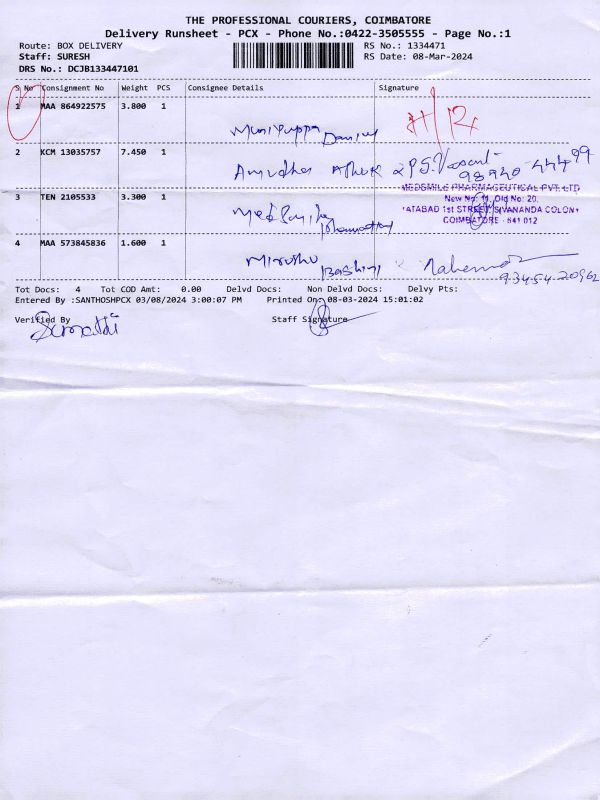 THE PROFESSIONAL COURIERS, COIMBATORE
Delivery Runsheet - PCX - Phone No.:0422-3505555 - Page No.:1
Route: BOX DELIVERY RS No.: 1334471
Staff: SURESH RS Date: 08-Mar-2024
DRS No.: DCJB133447101
S No Consignment No Weight PCS Consignee Details Signature
1 MAA 864922575 3.800 1
Muniyappa
2 KCM 13035757 7.450 1
Anudha Ashok
98940 44499
MEDSMILE PHARMACEUTICAL PVT. LTD
3 TEN 2105533 3.300 1 New No: 11, Old No: 20,
TATABAD 1st STREET, SIVANANDA COLONY
COIMBATORE - 641 012
4 MAA 573845836 1.600 1
93454-20962
Tot Docs: 4 Tot COD Amt: 0.00 Delvd Docs: Non Delvd Docs: Delvy Pts:
Entered By :SANTHOSHPCX 03/08/2024 3:00:07 PM Printed On: 08-03-2024 15:01:02
Verified By Staff Signature